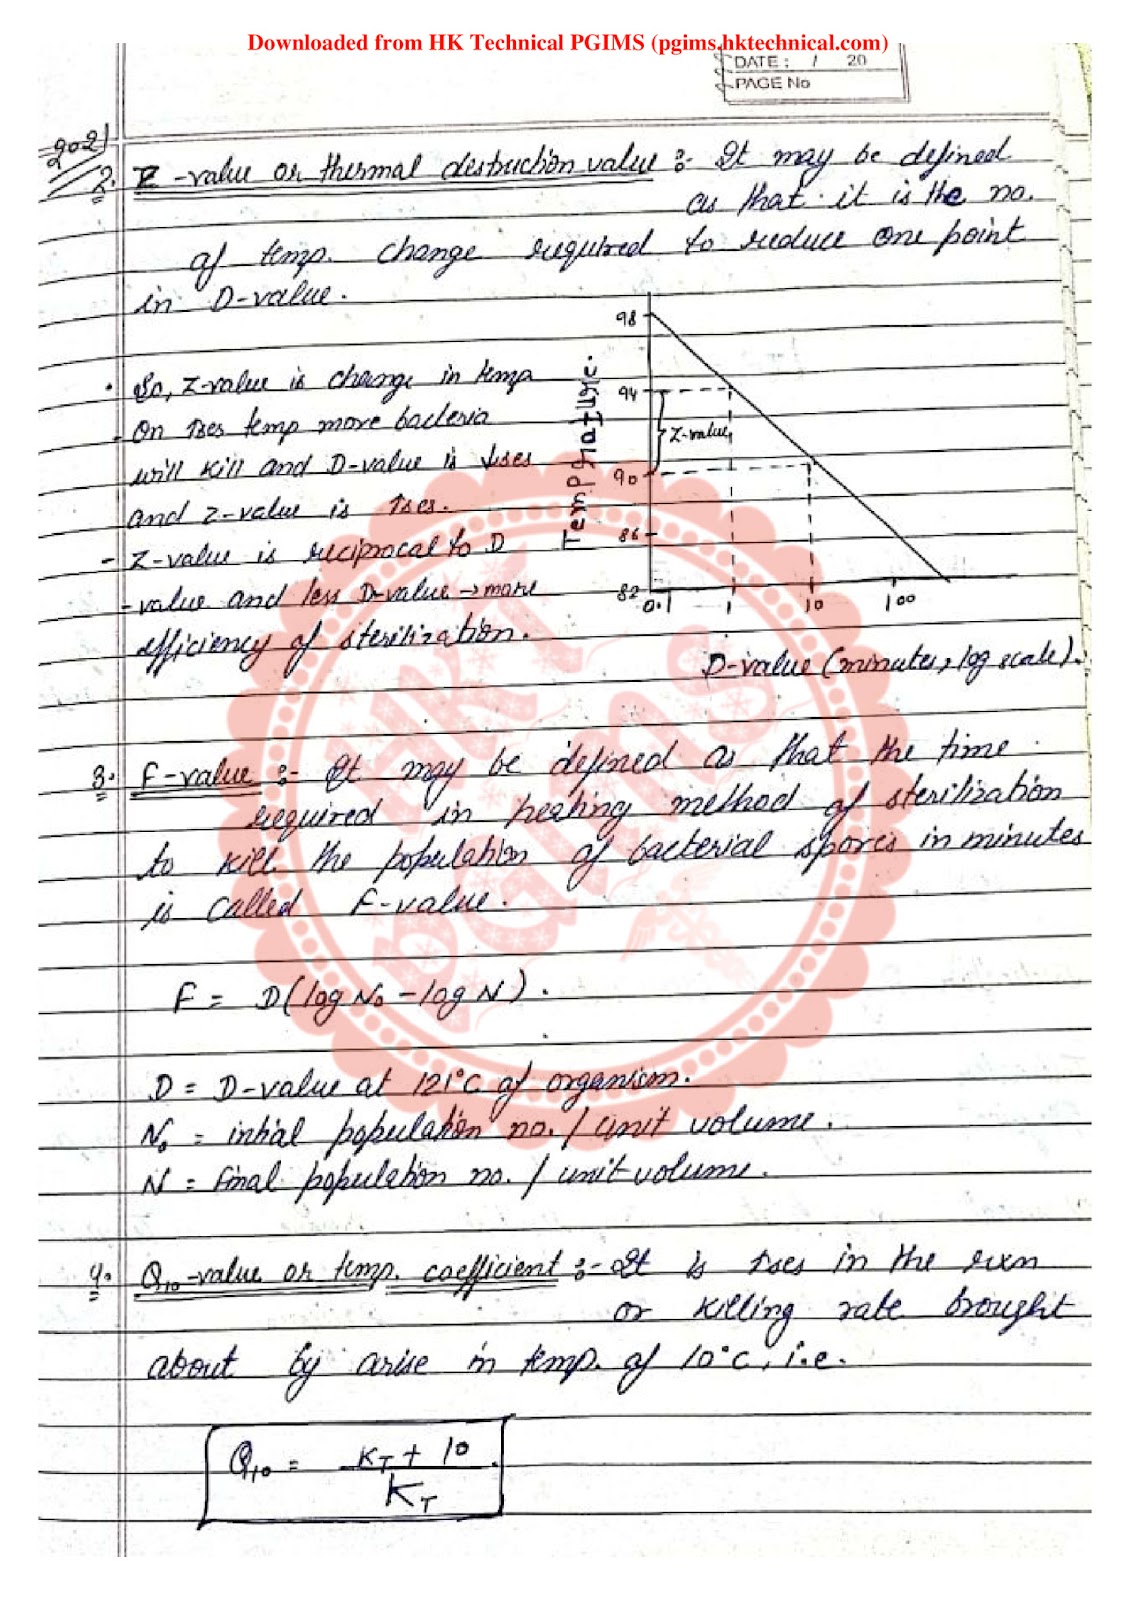 Downloaded from HK Technical PGIMS (pgims.hktechnical.com)
DATE: / 20
PAGE No
2021
2. Z-value or thermal destruction value :- It may be defined
as that it is the no.
of temp. change required to reduce one point
in D-value.
• So, Z-value is change in temp
- On ↑ses temp more bacteria
will kill and D-value is ↓ses
and z-value is ↑ses.
- Z-value is reciprocal to D
- value and less D-value → more
efficiency of sterilization.
Temperature.
98
94
90
86
82
Z-value
0.1 1 10 100
D-value (minutes, log scale).
3. F-value :- It may be defined as that the time
required in heating method of sterilization
to kill the population of bacterial spores in minutes
is called F-value.
F = D(log N₀ - log N).
D = D-value at 121°C of organism.
N₀ = initial population no. / unit volume.
N = Final population no. / unit volume.
4. Q₁₀-value or temp. coefficient :- It is ↑ses in the rxn
or killing rate brought
about by arise in temp. of 10°C, i.e.
Q₁₀ = K_T + 10 / K_T
HKT
PGIMS